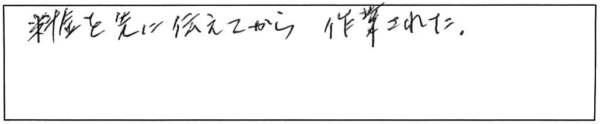 料金を先に伝えてから 作業された.